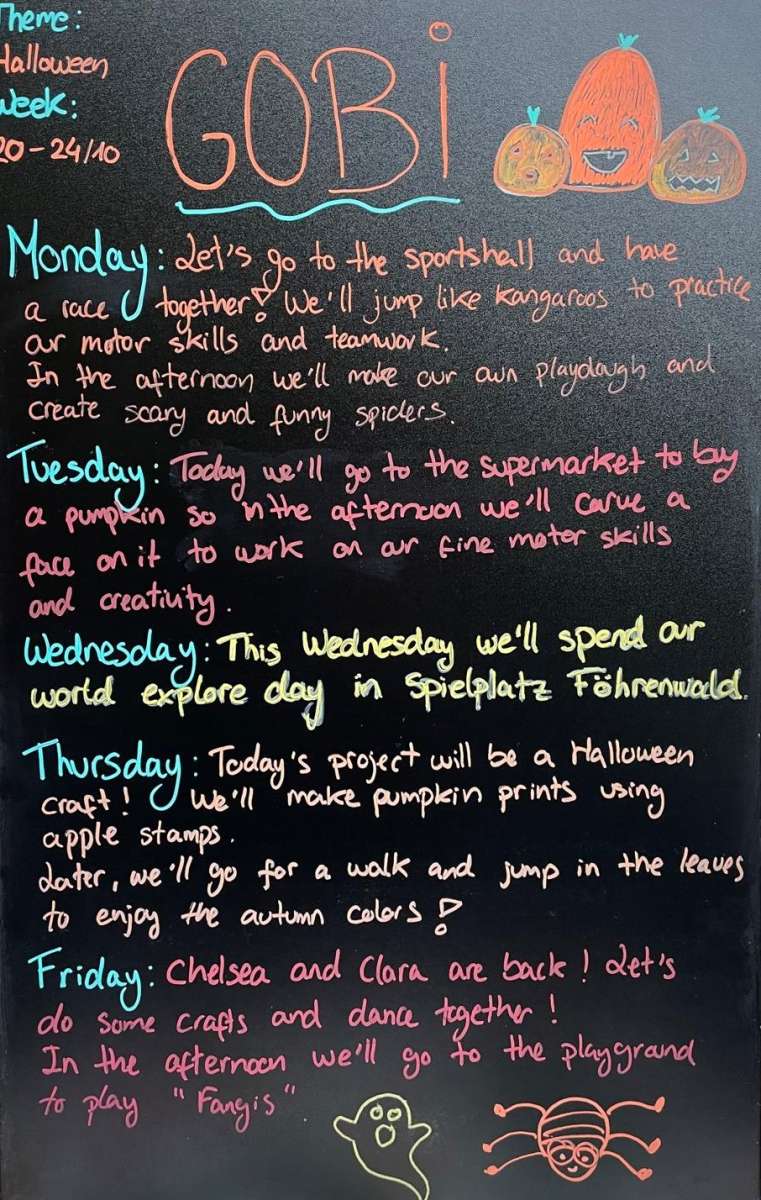 Theme:
Halloween
Week:
20-24/10
GOBi
Monday: Let's go to the sportshall and have
a race together! We'll jump like kangaroos to practice
our motor skills and teamwork.
In the afternoon we'll make our own playdough and
create scary and funny spiders.
Tuesday: Today we'll go to the supermarket to buy
a pumpkin so in the afternoon we'll carve a
face on it to work on our fine motor skills
and creativity.
Wednesday: This Wednesday we'll spend our
world explore day in Spielplatz Föhrenwald.
Thursday: Today's project will be a Halloween
craft! We'll make pumpkin prints using
apple stamps.
Later, we'll go for a walk and jump in the leaves
to enjoy the autumn colors!
Friday: Chelsea and Clara are back! Let's
do some crafts and dance together!
In the afternoon we'll go to the playground
to play "Fangis"